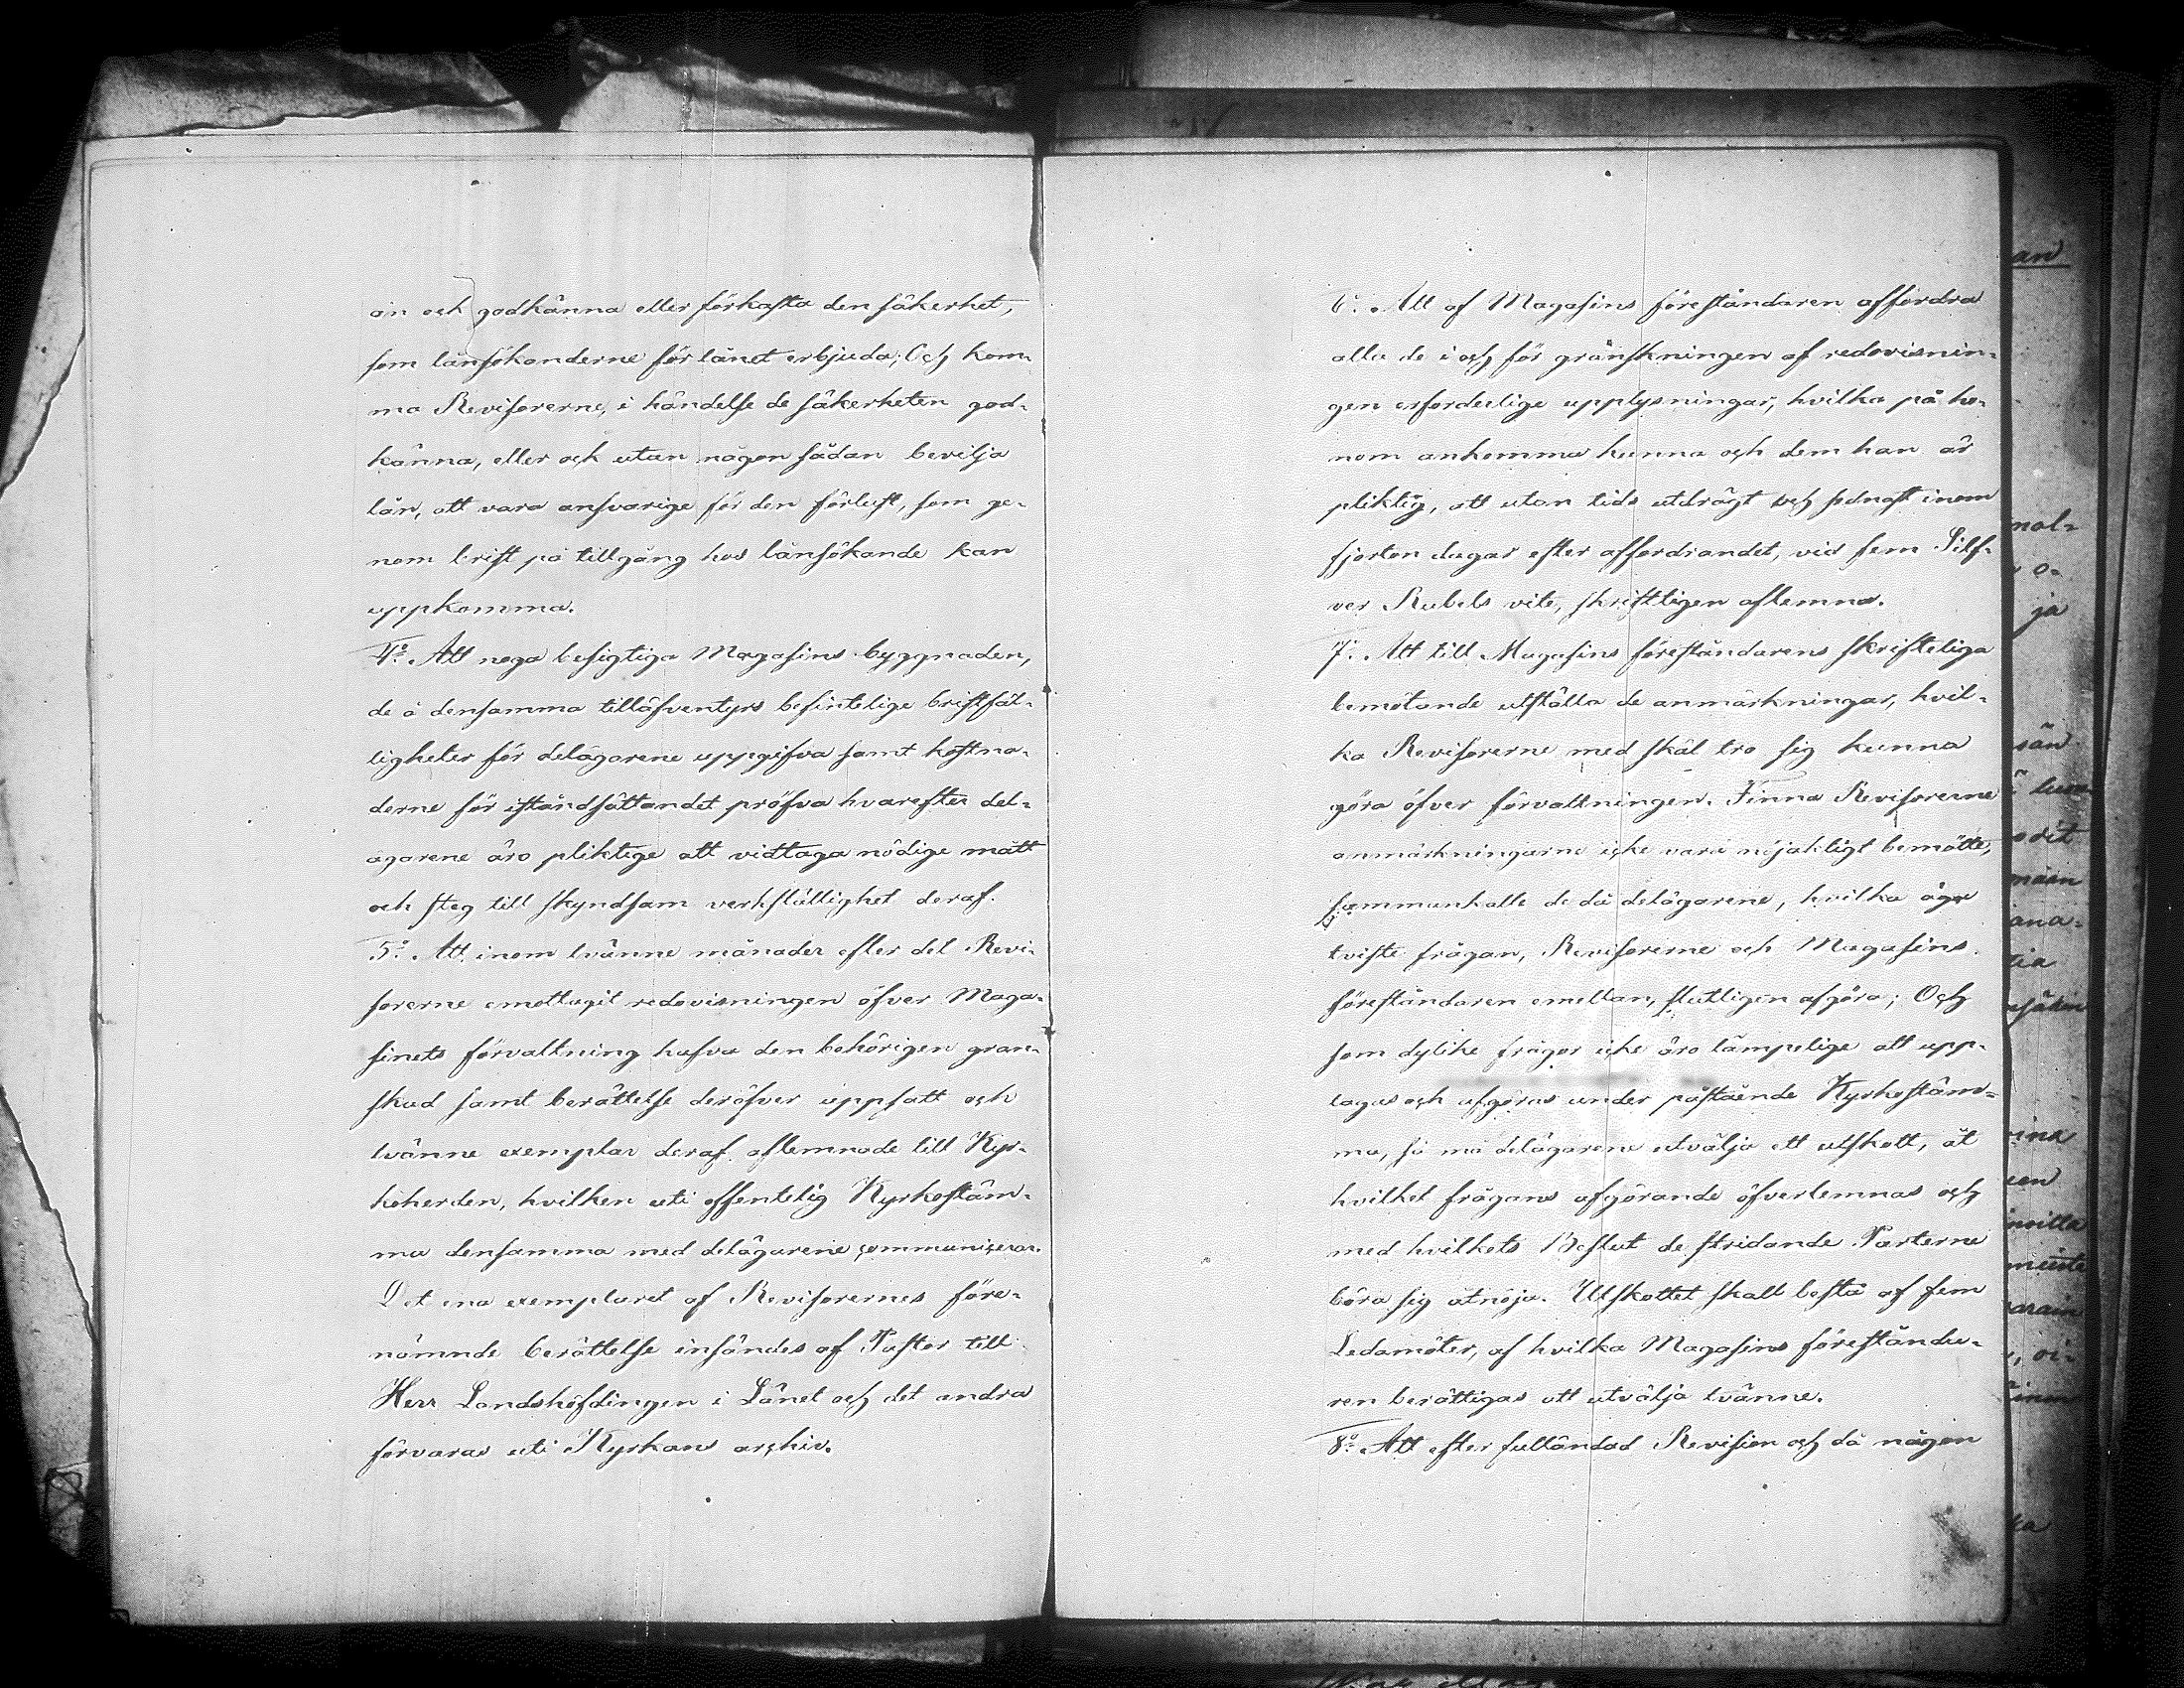 an och godkänna eller förkasta den säkerhet,
som lånsökanderne för lånet erbjuda; Och kom-
ma Revisorerne, i händelse de säkerheten god-
känna, eller ock utan någon sådan bevilja
lån, att vara ansvarige för den förlust, som ge-
nom brist på tillgång hos lånsökande kan
uppkomma.
4:o Att noga besigtiga Magasins byggnaden,
de å densamma tilläfventyrs befintelige bristfäl-
ligheter för delägarene uppgifva samt kostna-
derne för iståndsättandet pröfva hvarefter del-
ägarene äro pliktige att vidtaga nödige mått
och steg till skyndsam verkställighet deraf.
5:o Att inom tvänne månader efter det Revi-
sorerne emottagit redovisningen öfver Maga-
sinets förvaltning hafva den behörigen gran-
skad samt berättelse deröfver uppsatt och
tvänne exemplar deraf aflemnade till Kyr-
koherden, hvilken uti offentelig Kyrkostäm-
ma densamma med delägarene communicerar.
Det ena exemplaret af Revisorernes före-
nämnde berättelse insändes af Pastor till
Herr Landshöfdingen i Länet och det andra
förvaras uti Kyrkans archiv.
6:o Att af Magasins föreståndaren affordra
alla de i och för gränskningen af redovisnin-
gen erforderlige upplysningar, hvilka på ho-
nom ankomma kunna och dem han är
pliktig, att utan tids utdrägt och sednast inom
fjorton dagar efter affordrandet, vid fem Silf-
ver Rubels vite, skriftligen aflemna.
7:o Att till Magasins föreståndarens skrifteliga
bemötande utställa de anmärkningar, hvil-
ka Revisorerne med skäl tro sig kunna
göra öfver förvaltningen. Finna Revisorerne
anmärkningarne icke vara nöjaktigt bemötte,
sammankalle de då delägarene, hvilka äge
tviste frågan, Revisorerne och Magasins
föreståndaren emellan, slutligen afgöra; Och
som dylike frågor icke äro lämpelige att upp-
tagas och afgöras under påstående Kyrkostäm-
ma, så må delägarene utvälja ett utskott, åt
hvilket frågans afgörande öfverlemnas och
med hvilkets Beslut de stridande Parterne
böra sig åtnöja. Utskottet skall bestå af fem
Ledamöter, af hvilka Magasins föreståndå-
ren berättigas att utvälja tvänne.
8:o Att efter fulländad Revision och då någon